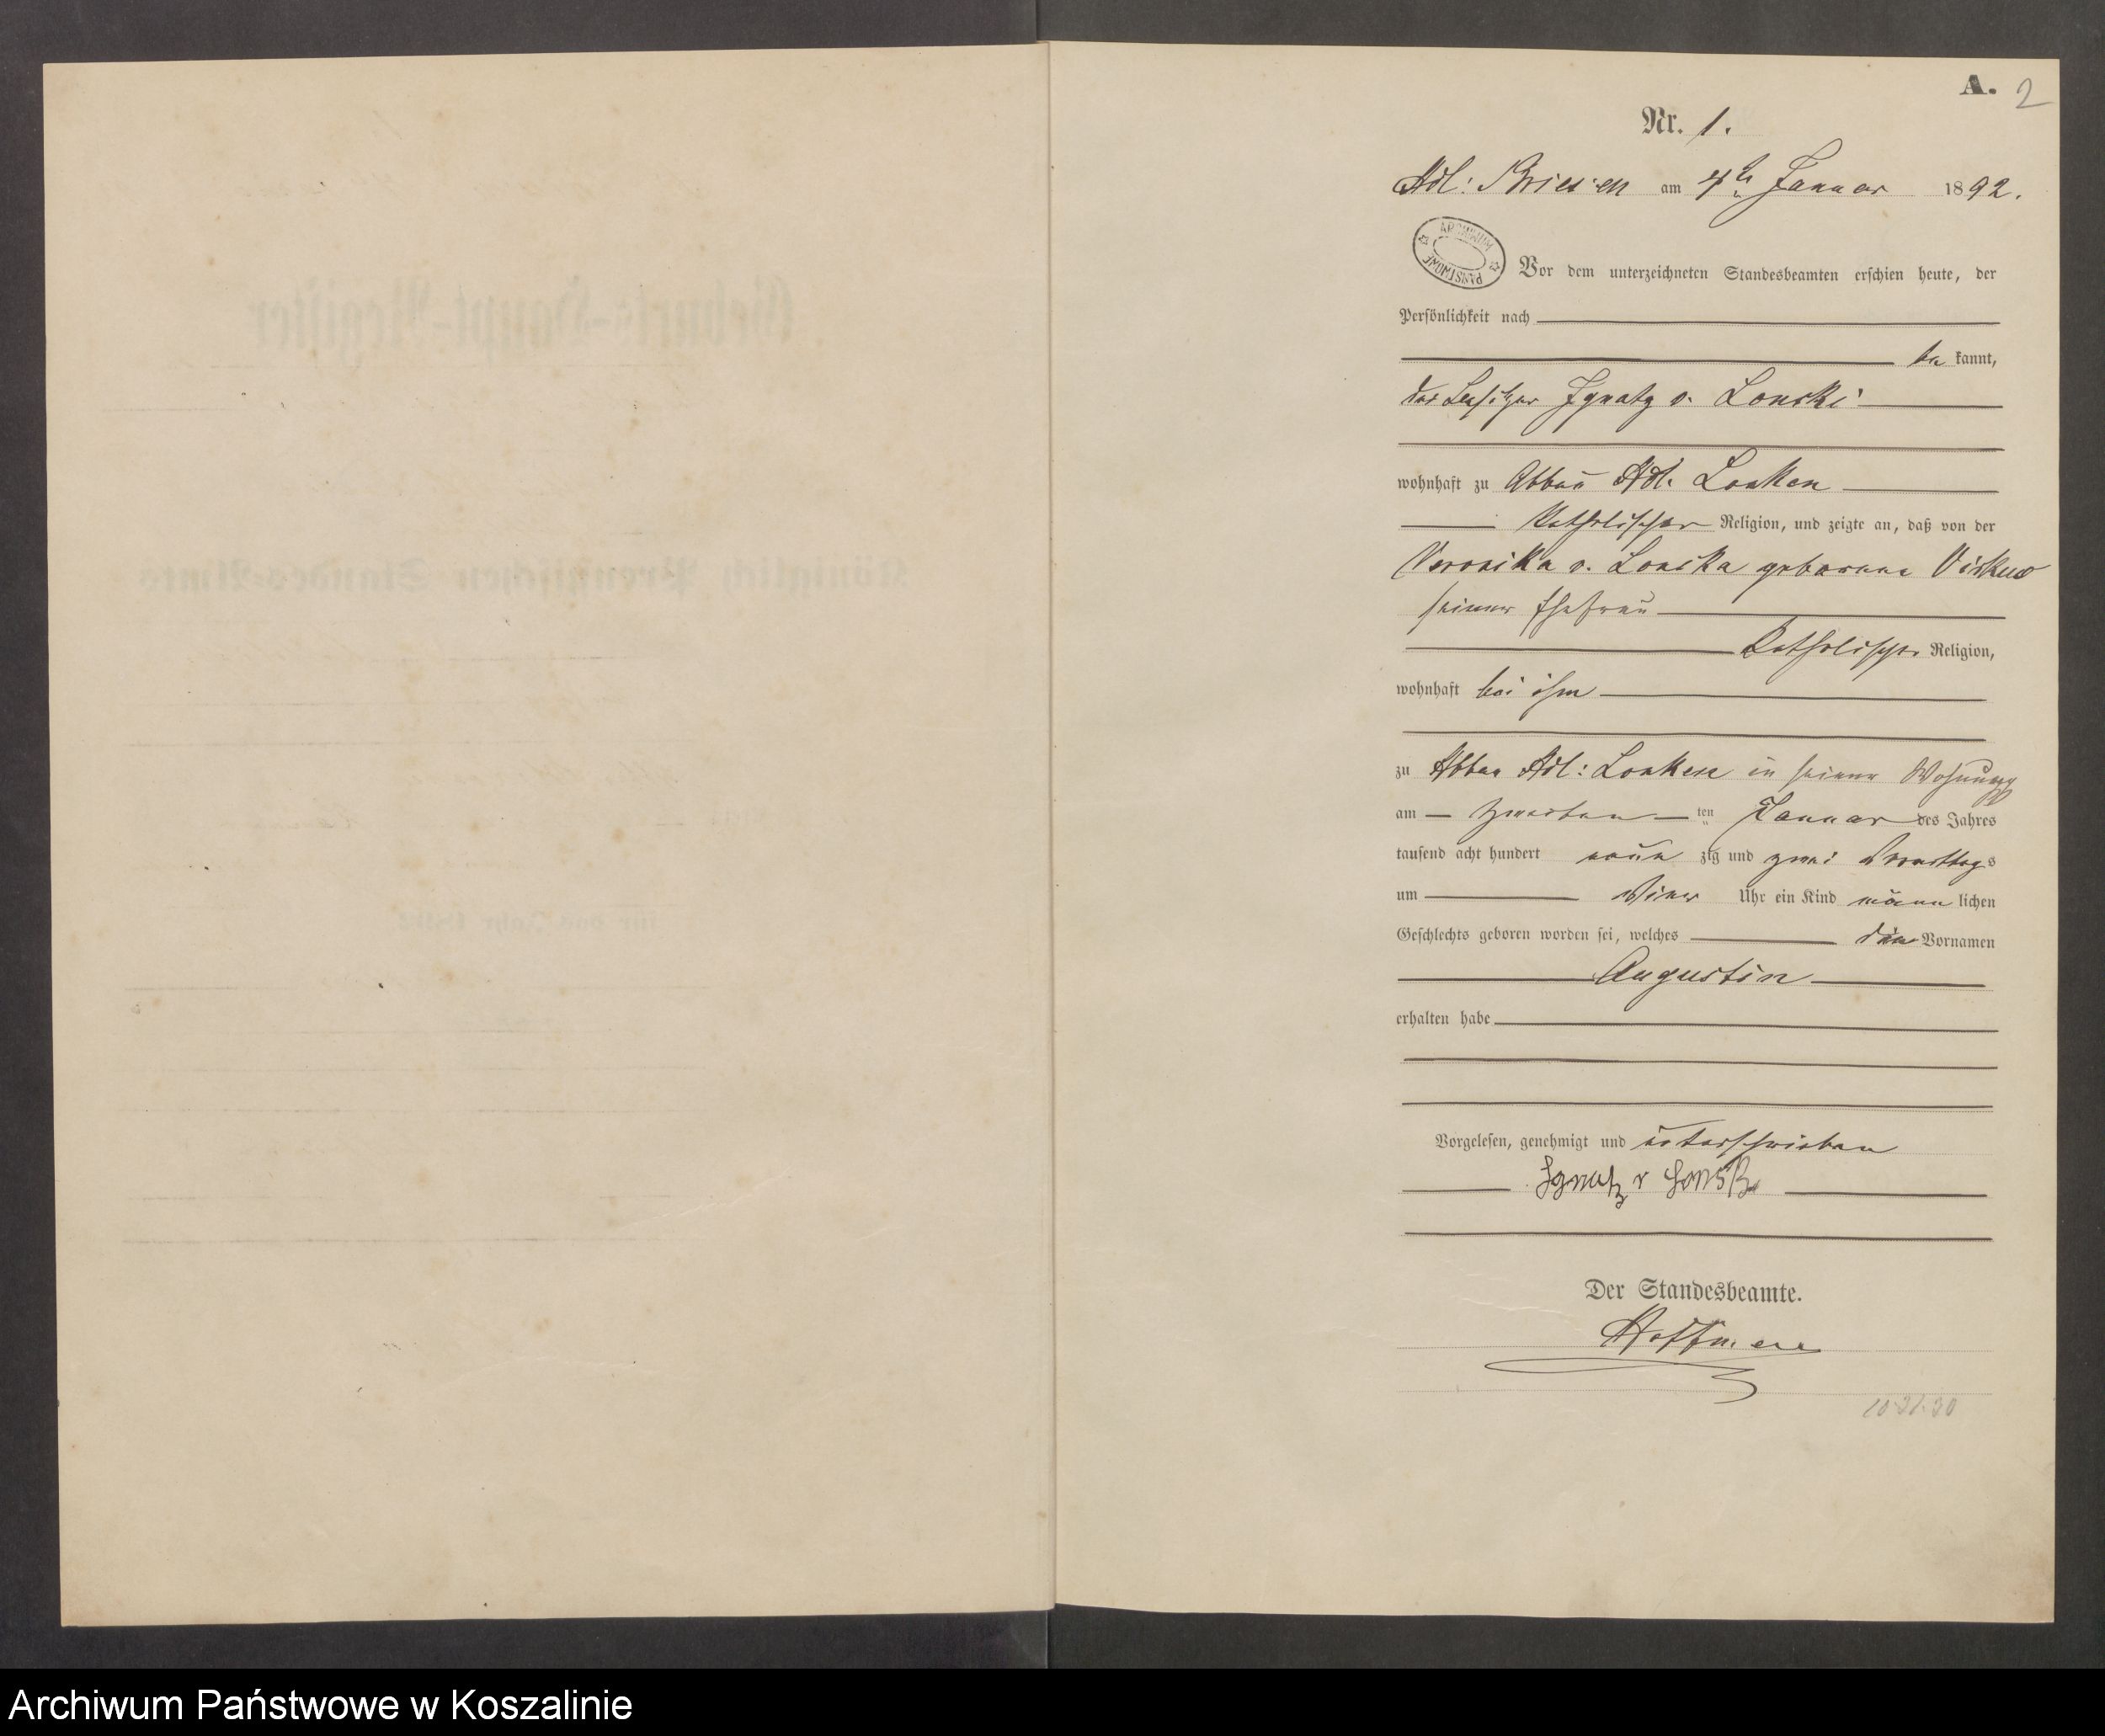 A. 2
Nr. 1.
Adl: Briesen am 4ten Januar 1892.
ARCHIWUM PAŃSTWOWE
Vor dem unterzeichneten Standesbeamten erschien heute, der
Persönlichkeit nach
be kannt,
der Besitzer Ignatz v. Lonski
wohnhaft zu Abbau Adl. Lonken
Katholischer Religion, und zeigte an, daß von der
Veronika v. Lonska geborene
seiner Ehefrau
Katholischer Religion,
wohnhaft bei ihm
zu Abbau Adl: Lonken in seiner Wohnung
am zweiten ten Januar des Jahres
tausend acht hundert neun zig und zwei Vormittags
um Uhr ein Kind männ lichen
Geschlechts geboren worden sei, welches den Vornamen
Augustin
erhalten habe
Vorgelesen, genehmigt und unterschrieben
Ignatz v Lonski
Der Standesbeamte.
Hoffmann
Geburts-Haupt-Register
Königlich Preußischen Standes-Amts
für das Jahr 1892.
Archiwum Państwowe w Koszalinie